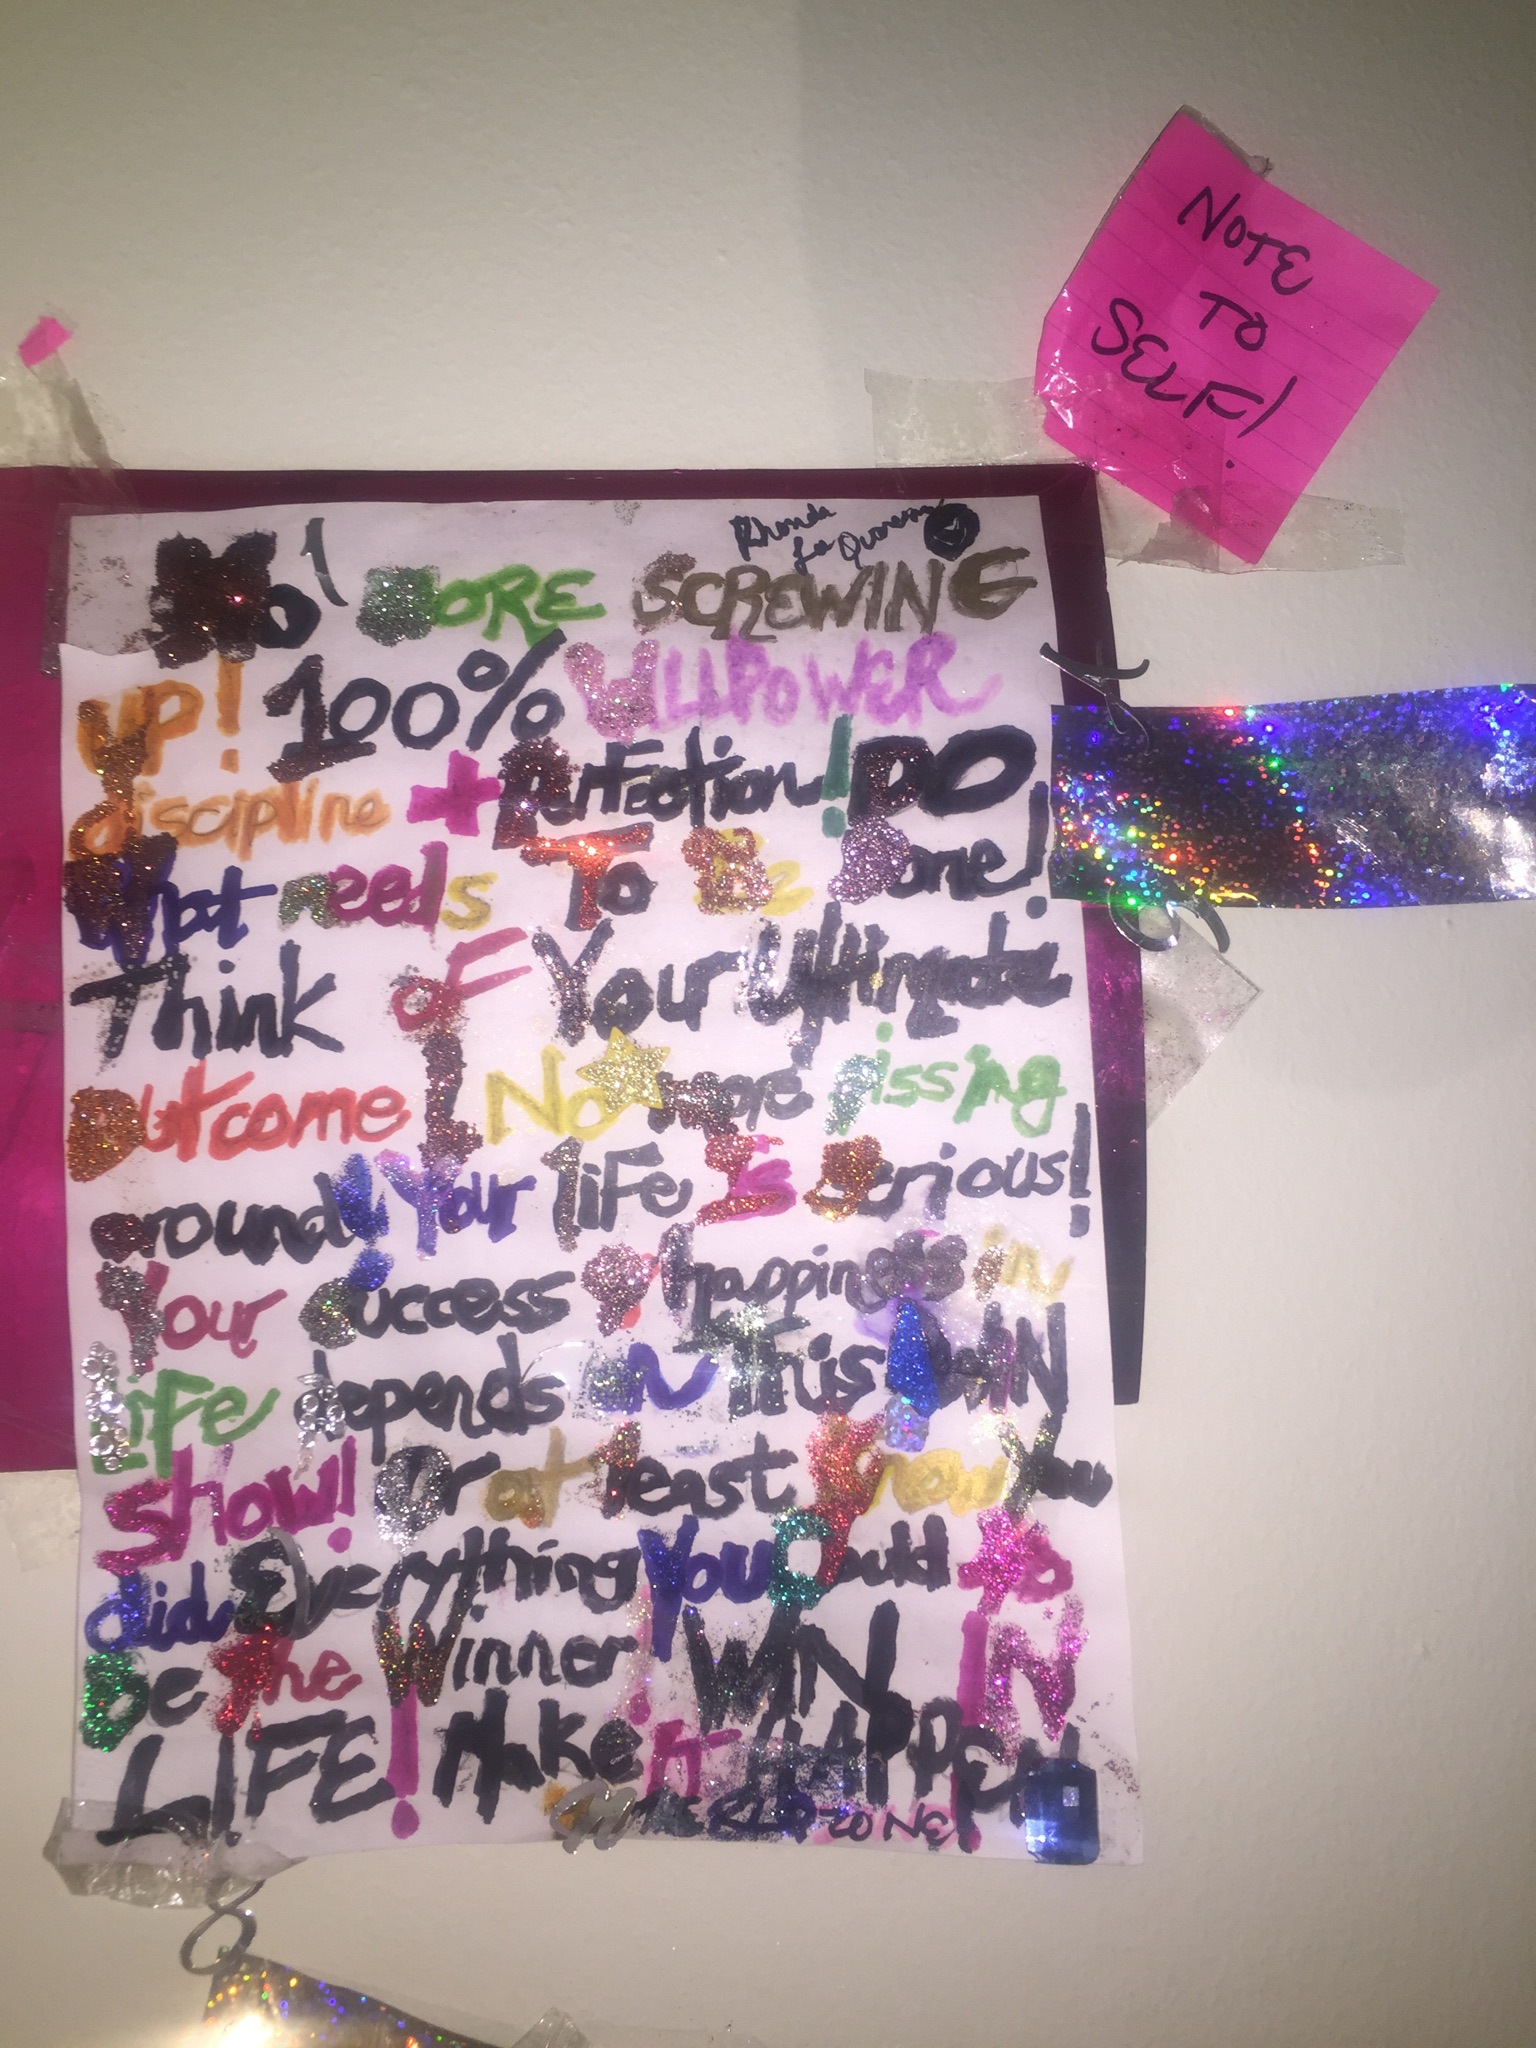 NOTE
TO
SELF!
Rhonda
No' MORE SCREWING
UP! 100% WILLPOWER
discipline + PerFection! DO
What needs To Be Done!
Think oF Your Ultimate
Outcome! No more pissing
around! Your liFe Is Serious!
Your Success & happiness in
LiFe depends on This
Show! Or at least know you
did Everything You Could to
Be The Winner! WIN IN
LIFE! Make it HAPPEN
ZONE!